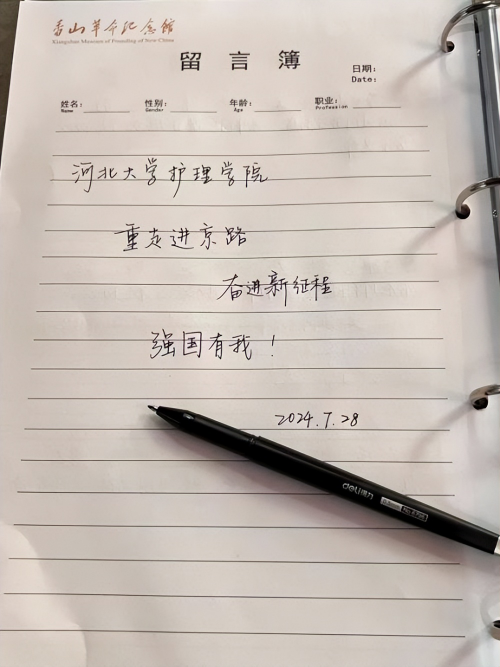 香山革命纪念館
Xiangshan Museum of Founding of New China
留言簿
日期：
Date:
姓名：
Name
性别：
Gender
年龄：
Age
职业：
Profession
河北大学护理学院
重走进京路
奋进新征程
强国有我！
2024.7.28
deli得力